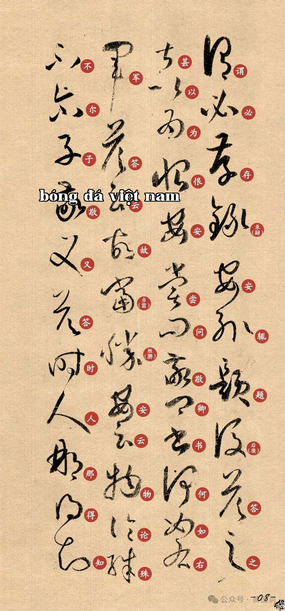 谓必存録安辄题後答之
甚以为恨安尝问敬卿书何如右
军答云故当胜安云物论殊
不尔子敬又答时人那得知
bóng đá việt nam
公众号
-08-